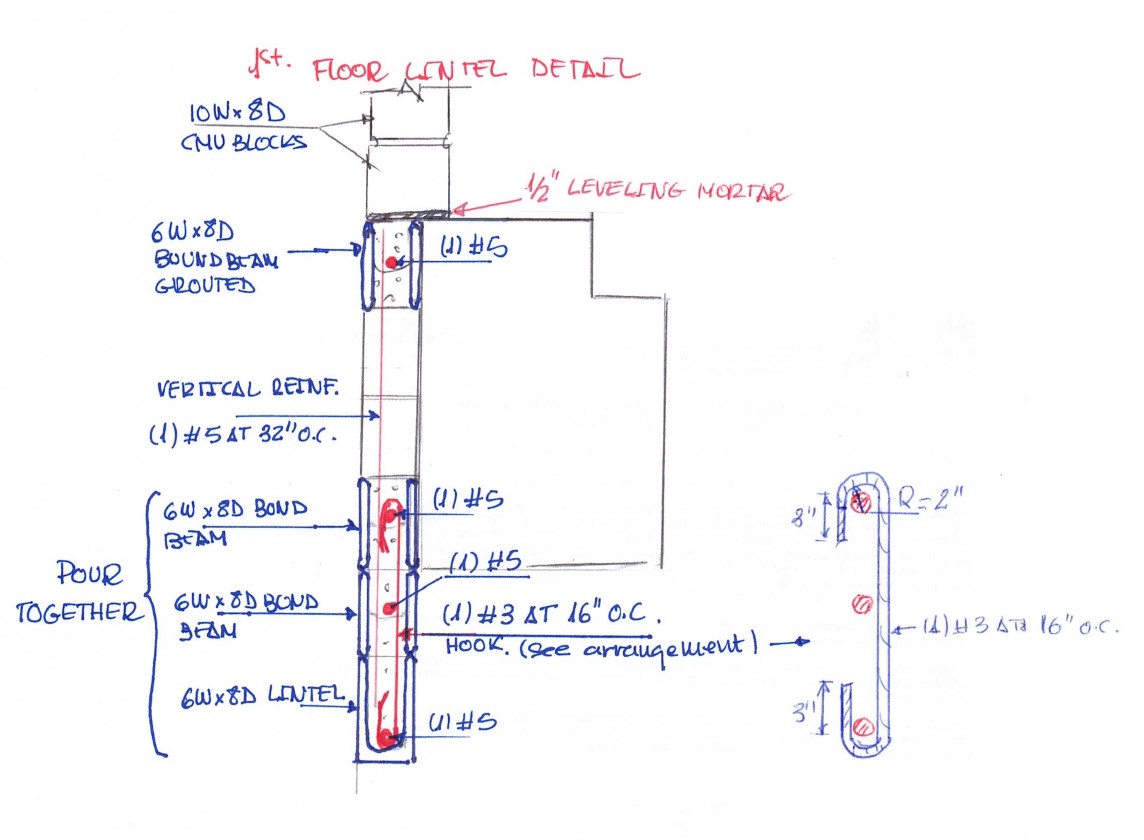 1st. FLOOR LINTEL DETAIL
10W x 8D
CMU BLOCKS
1/2" LEVELING MORTAR
6W x 8D
BOUND BEAM
GROUTED
(1) #5
VERTICAL REINF.
(1) #5 AT 32" O.C.
6W x 8D BOND
BEAM
(1) #5
POUR
TOGETHER
(1) #5
6W x 8D BOND
BEAM
(1) #3 AT 16" O.C.
HOOK. (See arrangement)
6W x 8D LINTEL
(1) #5
3"
R=2"
(1) #3 AT 16" O.C.
3"